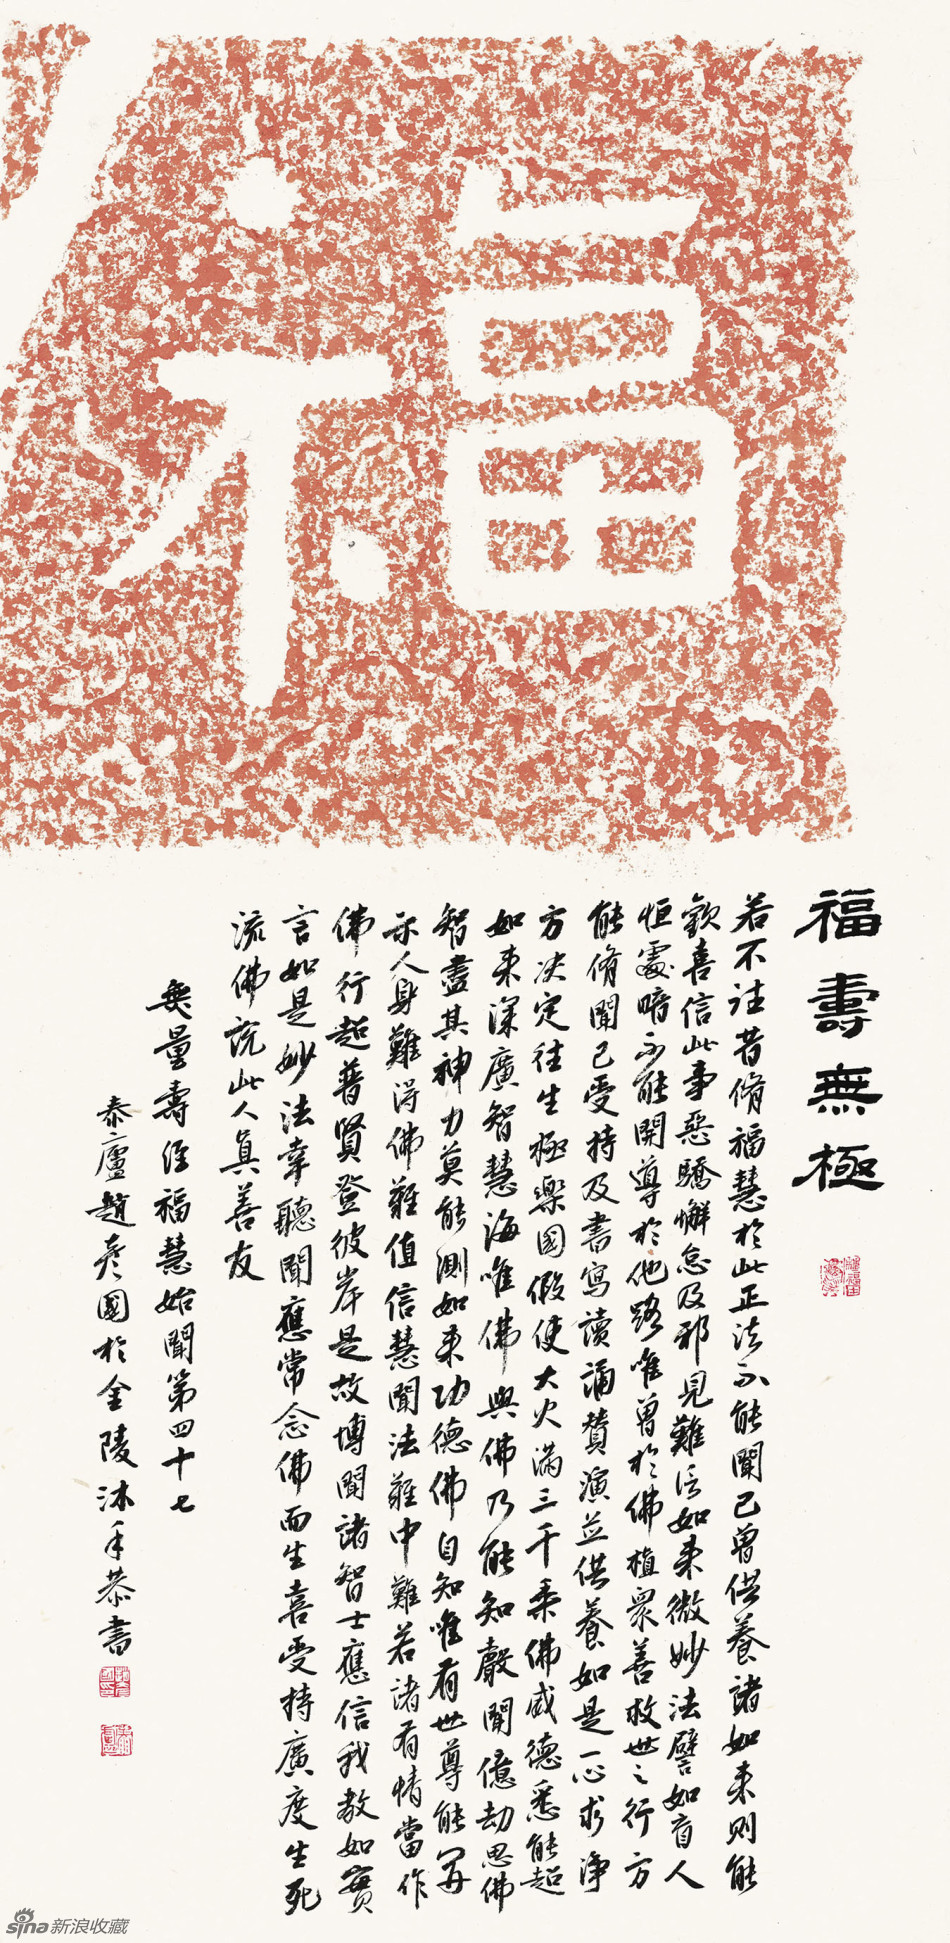 福
福壽無極
若不往昔脩福慧於此正法不能聞已曾供養諸如來則能
歡喜信此事惡驕懈怠及邪見難信如來微妙法譬如盲人
恒處暗不能開導於他路唯曾於佛植眾善救世之行方
能脩聞已受持及書寫讀誦贊演並供養如是一心求淨
方決定往生極樂國假使大火滿三千乘佛威德悉能超
如來深廣智慧海唯佛與佛乃能知聲聞億劫思佛
智盡其神力莫能測如來功德佛自知唯有世尊能開
示人身難得佛難值信慧聞法難中難若諸有情當作
佛行超普賢登彼岸是故博聞諸智士應信我教如實
言如是妙法幸聽聞應常念佛而生喜受持廣度生死
流佛說此人真善友
無量壽經福慧始聞第四十七
泰廬趙彥國於金陵沐手恭書
sina新浪收藏